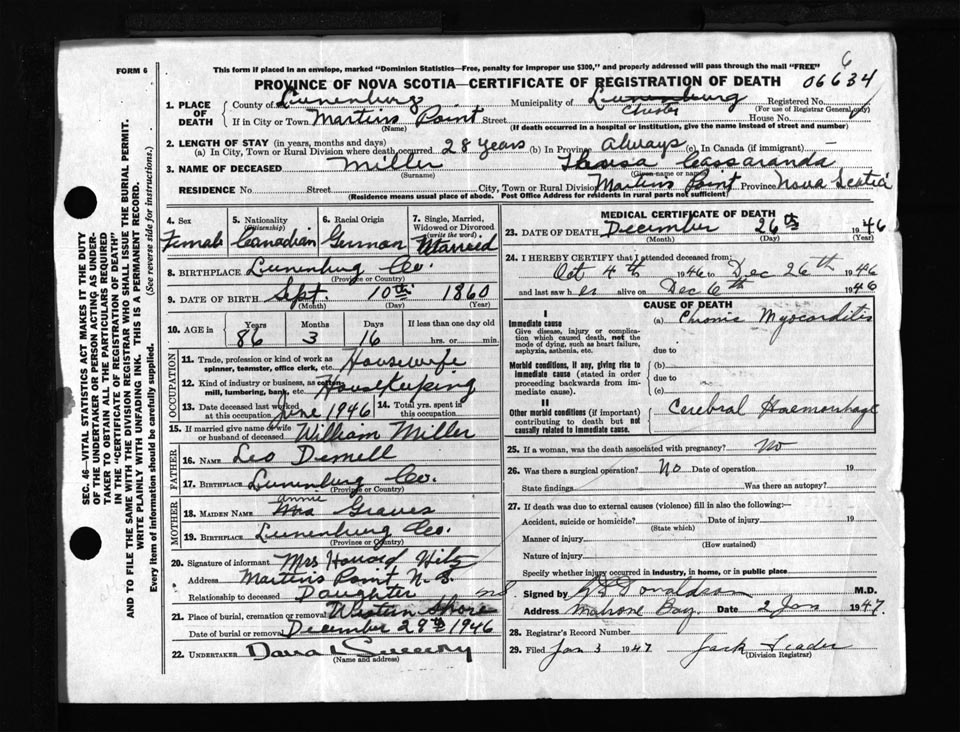 FORM 6
This form if placed in an envelope, marked "Dominion Statistics—Free, penalty for improper use $300," and properly addressed will pass through the mail "FREE"
6
PROVINCE OF NOVA SCOTIA—CERTIFICATE OF REGISTRATION OF DEATH 06634
1. PLACE OF DEATH
County of Lunenburg Municipality of Lunenburg Chester Registered No.
(For use of Registrar General only)
If in City or Town Martins Point Street House No.
(Name) (If death occurred in a hospital or institution, give the name instead of street and number)
2. LENGTH OF STAY (in years, months and days)
(a) In City, Town or Rural Division where death occurred 28 years (b) In Province Always (c) In Canada (if immigrant)
3. NAME OF DECEASED Miller Theresa Cassaranda
(Surname) (Given name or names)
RESIDENCE No Street City, Town or Rural Division Martins Point Province Nova Scotia
(Residence means usual place of abode. Post Office Address for residents in rural parts not sufficient)
4. Sex Female
5. Nationality (Citizenship) Canadian
6. Racial Origin German
7. Single, Married, Widowed or Divorced (write the word) Married
8. BIRTHPLACE Lunenburg Co.
(Province or Country)
9. DATE OF BIRTH Sept. 10th 1860
(Month) (Day) (Year)
10. AGE in Years Months Days If less than one day old
86 3 16 hrs. or min.
OCCUPATION
11. Trade, profession or kind of work as spinner, teamster, office clerk, etc. Housewife
12. Kind of industry or business, as cotton mill, lumbering, bank, etc. Housekeeping
13. Date deceased last worked at this occupation June 1946
14. Total yrs. spent in this occupation
15. If married give name of wife or husband of deceased William Miller
FATHER
16. NAME Leo Demell
17. BIRTHPLACE Lunenburg Co.
(Province or Country)
MOTHER
18. MAIDEN NAME Annie Graves
19. BIRTHPLACE Lunenburg Co.
(Province or Country)
20. Signature of informant Mrs Howard Hilz
Address Martins Point N.S.
Relationship to deceased Daughter
21. Place of burial, cremation or removal Western Shore NS
Date of burial or removal December 29th 1946
22. UNDERTAKER
(Name and address)
MEDICAL CERTIFICATE OF DEATH
23. DATE OF DEATH December 26th 1946
(Month) (Day) (Year)
24. I HEREBY CERTIFY that I attended deceased from:
Oct 4th 1946 to Dec 26th 1946
and last saw her alive on Dec 6th 1946
CAUSE OF DEATH
I
Immediate cause
Give disease, injury or complication which caused death, not the mode of dying, such as heart failure, asphyxia, asthenia, etc.
(a) Chronic Myocarditis
due to
Morbid conditions, if any, giving rise to immediate cause (stated in order proceeding backwards from immediate cause).
(b)
due to
(c)
II
Other morbid conditions (if important) contributing to death but not causally related to immediate cause.
Cerebral Haemorrhage
25. If a woman, was the death associated with pregnancy? No
26. Was there a surgical operation? No Date of operation 19
State findings Was there an autopsy?
27. If death was due to external causes (violence) fill in also the following:
Accident, suicide or homicide? Date of injury 19
(State which)
Manner of injury
(How sustained)
Nature of injury
Specify whether injury occurred in industry, in home, or in public place
Signed by Donaldson M.D.
Address Mahone Bay. Date 2 Jan 1947.
28. Registrar's Record Number
29. Filed Jan 3 1947 Jack
(Division Registrar)
SEC. 46—VITAL STATISTICS ACT MAKES IT THE DUTY
OF THE UNDERTAKER OR PERSON ACTING AS UNDERTAKER TO OBTAIN ALL THE PARTICULARS REQUIRED
IN THE "CERTIFICATE OF REGISTRATION OF DEATH"
AND TO FILE THE SAME WITH THE DIVISION REGISTRAR WHO SHALL ISSUE THE BURIAL PERMIT.
WRITE PLAINLY WITH UNFADING INK. THIS IS A PERMANENT RECORD.
Every item of information should be carefully supplied. (See reverse side for instructions.)